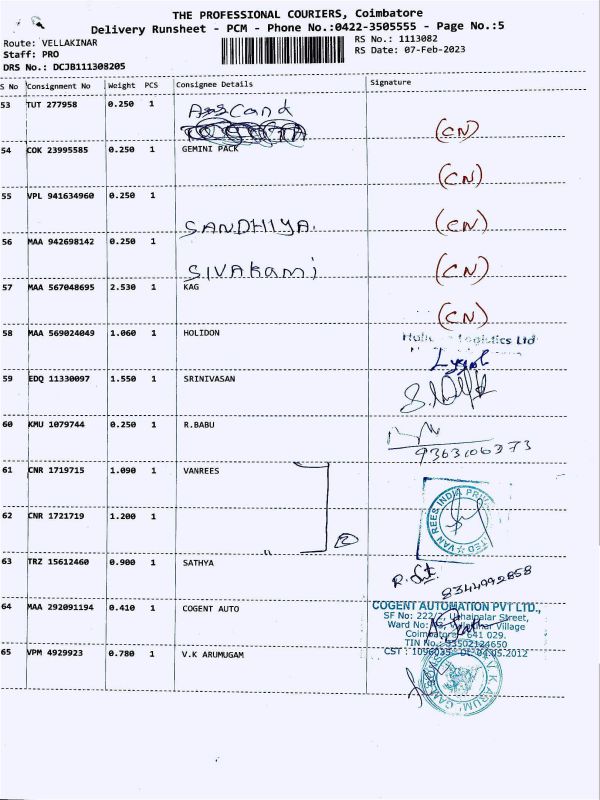 THE PROFESSIONAL COURIERS, Coimbatore
Delivery Runsheet - PCM - Phone No.:0422-3505555 - Page No.:5
Route: VELLAKINAR
RS No.: 1113082
Staff: PRO
RS Date: 07-Feb-2023
DRS No.: DCJB111308205
S No Consignment No Weight PCS Consignee Details Signature
53 TUT 277958 0.250 1
(CN)
54 COK 23995585 0.250 1 GEMINI PACK
(CN)
55 VPL 941634960 0.250 1
SANDHIYA. (CN)
56 MAA 942698142 0.250 1
SIVAKAMI (CN)
57 MAA 567048695 2.530 1 KAG
(CN)
58 MAA 569024049 1.060 1 HOLIDON
Logistics Ltd
59 EDQ 11330097 1.550 1 SRINIVASAN
60 KMU 1079744 0.250 1 R.BABU
9363106373
61 CNR 1719715 1.090 1 VANREES
VAN REES INDIA PRIVATE LIMITED
62 CNR 1721719 1.200 1 "
2
63 TRZ 15612460 0.900 1 SATHYA
8344992858
64 MAA 292091194 0.410 1 COGENT AUTO
COGENT AUTOMATION PVT LTD.,
SF No: 222/2, Street,
Ward No: Village
Coimbatore - 641 029.
TIN No.: 33502124650
CST : 1096035 Dt. 04.05.2012
65 VPM 4929923 0.780 1 V.K ARUMUGAM
V K ARUMUGAM